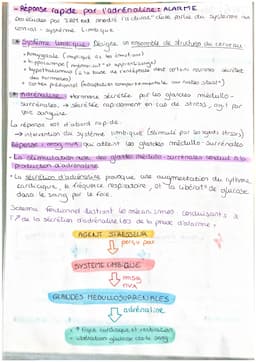 - Réponse rapide par l'adrénaline : ALARME
par l'activité d'une partie du système
limbique : système limbique
* Système limbique : Désigne un ensemble de structures du cerveau
• Amygdale (impliqué ds les émotions)
• hippocampe (mémoire et apprentissage)
• hypothalamus (à la base de l'encéphale dont certains neurones sécrètent
des hormones)
• cortex préfrontal
* Adrénaline : Hormone sécrétée par les glandes médullo-
surrénales, → sécrétée rapidement en cas de stress, agit par
voie sanguine
La réponse est d'abord rapide :
→ intervention du système limbique (stimulé par les agents stressants)
Réponse : nerveux qui atteint les glandes médullo-surrénales
- La stimulation des glandes médullo-surrénales conduit à la
production d'adrénaline
- La sécrétion d'adrénaline provoque une augmentation du rythme
cardiaque, la fréquence respiratoire, et la libération de glucose
dans le sang par le foie.
Schéma fonctionnel illustrant les mécanismes conduisants à
l'↗ de la sécrétion d'adrénaline lors de la phase d'alarme :
AGENT STRESSEUR
perçu par
SYSTEME LIMBIQUE
GLANDES MEDULLOSURRENALES
adrénaline
• ↑ fréq cardiaque et respiration
• libération glucose ds le sang